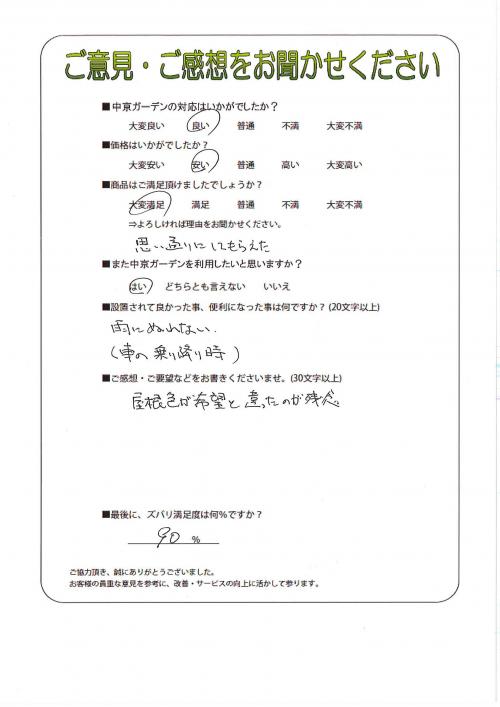 ご意見・ご感想をお聞かせください
■中京ガーデンの対応はいかがでしたか？
大変良い 良い 普通 不満 大変不満
■価格はいかがでしたか？
大変安い 安い 普通 高い 大変高い
■商品はご満足頂けましたでしょうか？
大変満足 満足 普通 不満 大変不満
⇒よろしければ理由をお聞かせください。
思い通りにしてもらえた
■また中京ガーデンを利用したいと思いますか？
はい どちらとも言えない いいえ
■設置されて良かった事、便利になった事は何ですか？(20文字以上)
雨にぬれない.
(車の乗り降り時)
■ご感想・ご要望などをお書きくださいませ。(30文字以上)
屋根色が希望と違ったのが残念
■最後に、ズバリ満足度は何％ですか？
90 %
ご協力頂き、誠にありがとうございました。
お客様の貴重な意見を参考に、改善・サービスの向上に活かして参ります。